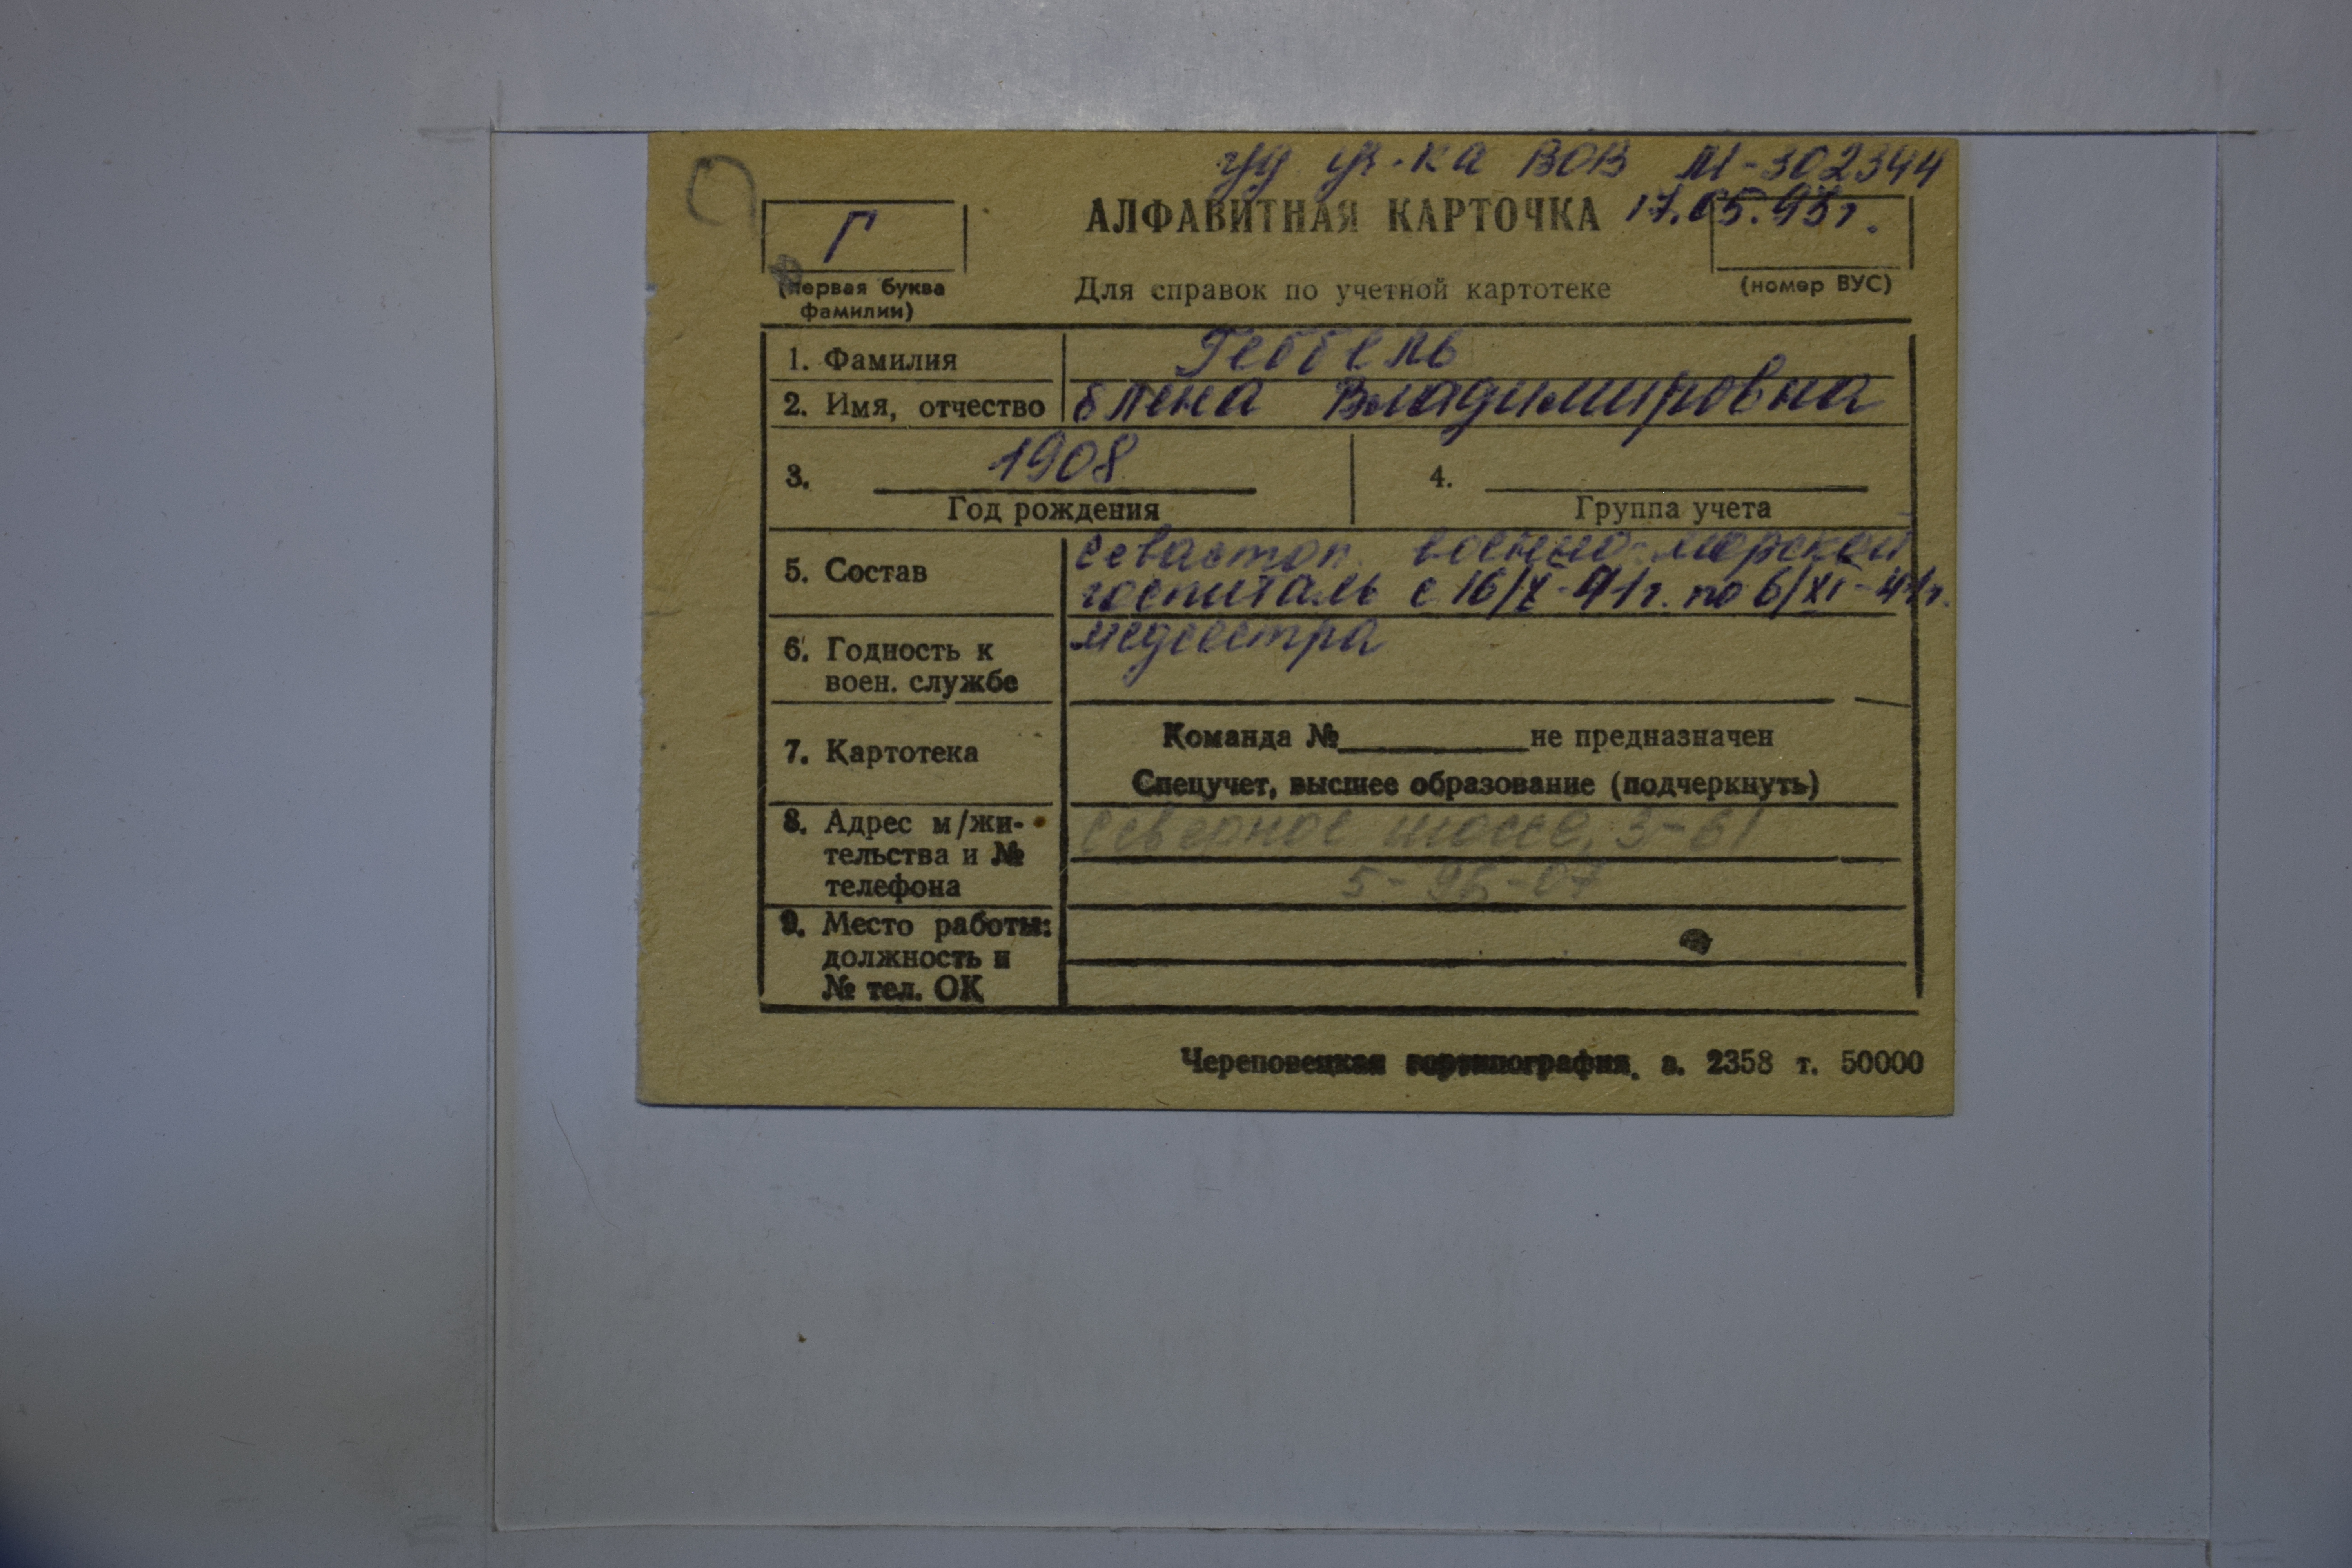 уд уч-ка ВОВ М-302344
17.05.93г.
Г
АЛФАВИТНАЯ КАРТОЧКА
(первая буква фамилии)
Для справок по учетной картотеке
(номер ВУС)
1. Фамилия Геббель
2. Имя, отчество Елена Владимировна
3. 1908
Год рождения
4.
Группа учета
5. Состав Севастоп. военно-морской
госпиталь с 16/X-41г. по 6/XI-41г.
6. Годность к воен. службе медсестра
7. Картотека
Команда № не предназначен
Спецучет, высшее образование (подчеркнуть)
8. Адрес м/жительства и № телефона Северное шоссе, 3-61
5-96-07
9. Место работы: должность и № тел. ОК
Череповецкая гортипография. з. 2358 т. 50000